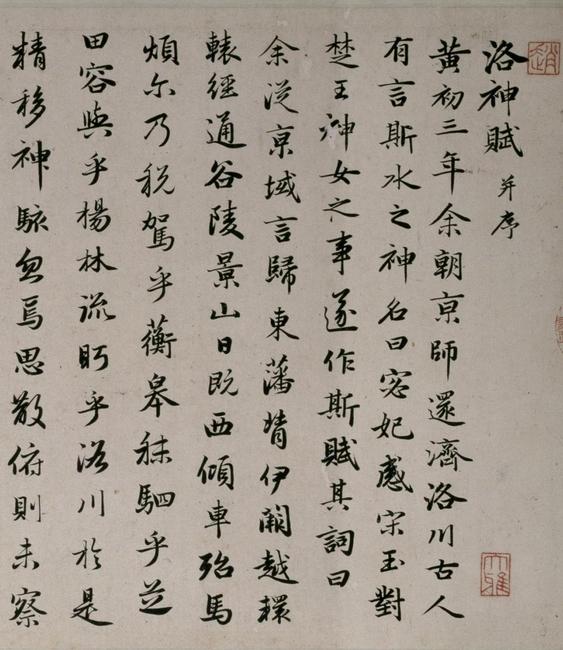 洛神賦 并序
黃初三年余朝京師還濟洛川古人
有言斯水之神名曰宓妃感宋玉對
楚王神女之事遂作斯賦其詞曰
余從京域言歸東藩背伊闕越轘
轅經通谷陵景山日既西傾車殆馬
煩尓乃稅駕乎蘅皋秣駟乎芝
田容與乎楊林流眄乎洛川於是
精移神駭忽焉思散俯則未察
趙
大雅